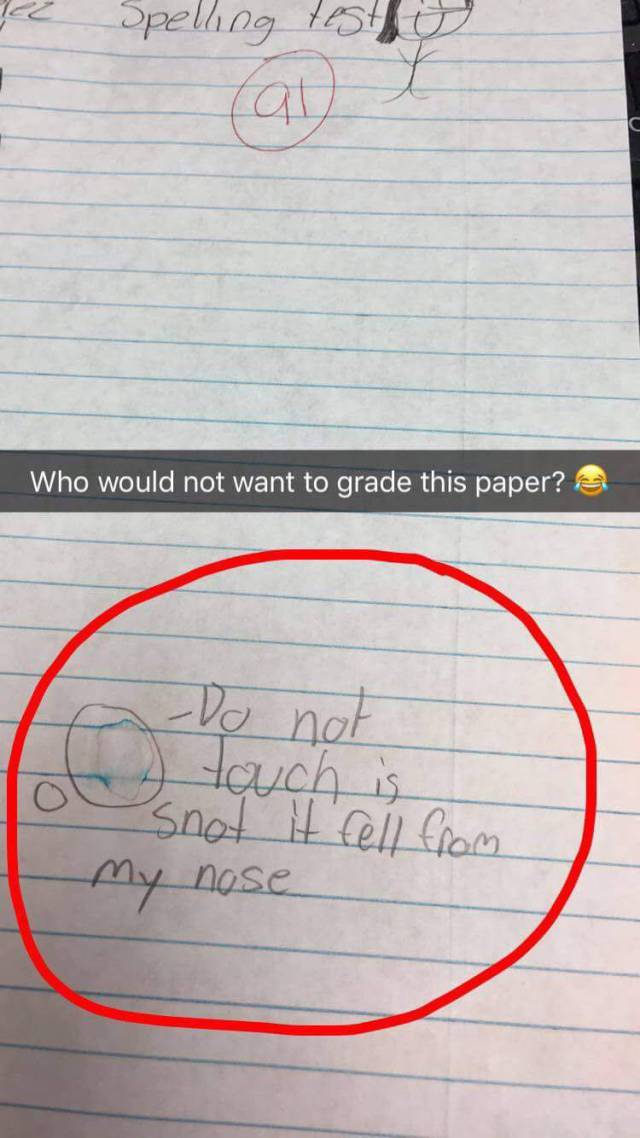 Spelling test
91
Who would not want to grade this paper? 😂
-Do not
touch is
snot it fell from
my nose